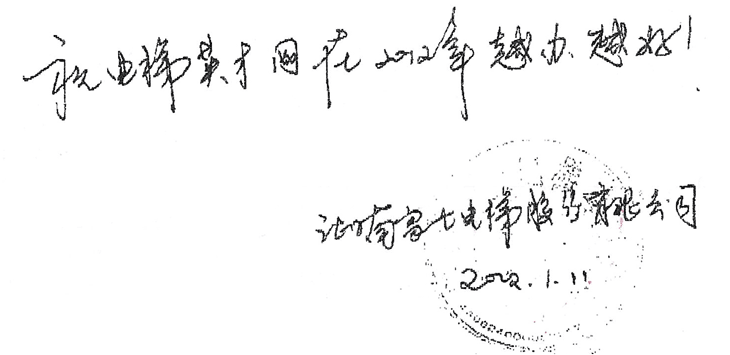 祝电梯英才网在2012年越办越好!
江南富士电梯股份有限公司
2012.1.11